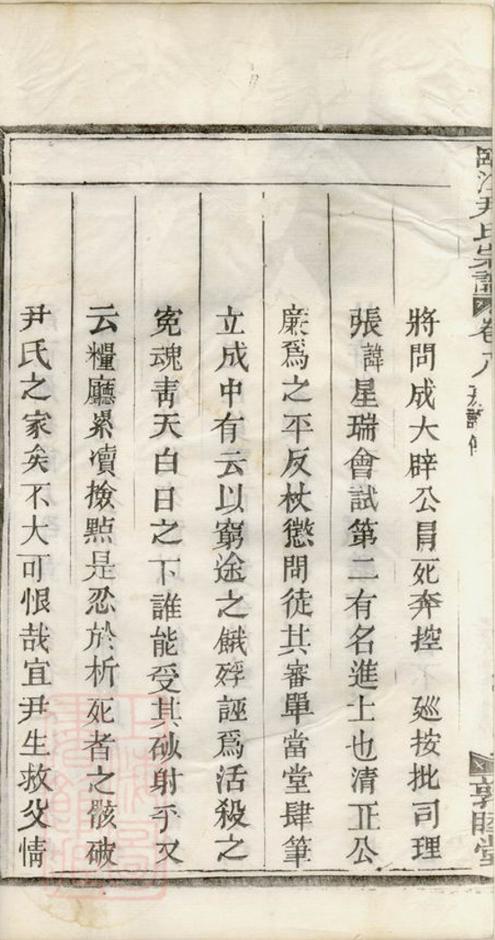 將問成大辟公冒死奔控 廵按批司理
張諱星瑞會試第二有名進士也清正公
廉爲之平反杖懲問徒其審單當堂肆筆
立成中有云以窮途之餓殍誣爲活殺之
寃魂靑天白日之下誰能受其砍射乎又
云糧廳累瀆撿㸃是忍於析死者之骸破
尹氏之家矣不大可恨哉宜尹生救父情
尹氏宗譜
卷八
敦睦堂